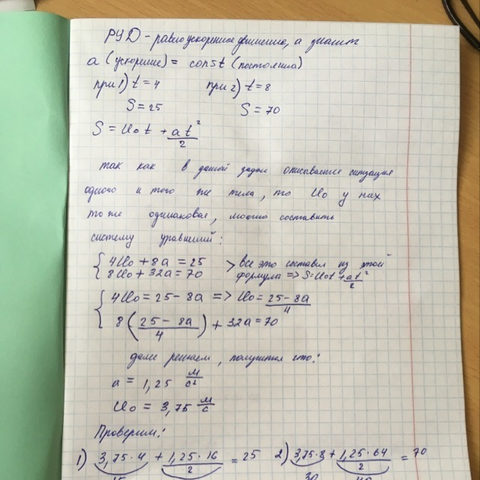 РУД - равноускоренное движение, а значит
a (ускорение) = const (постоянна)
при 1) t = 4 при 2) t = 8
S = 25 S = 70
S = U₀t + at²/2
так как в данной задаче описывается ситуация
одного и того же тела, то U₀ у них
тоже одинаковая, можно составить
систему уравнений:
{ 4U₀ + 8a = 25 > все это составил из этой
8U₀ + 32a = 70 формулы => S = U₀t + at²/2
{ 4U₀ = 25 - 8a => U₀ = 25 - 8a/4
8(25 - 8a/4) + 32a = 70
далее решаем, получится что:
a = 1,25 м/с²
U₀ = 3,75 м/с
Проверим:
1) 3,75·4 + 1,25·16/2 = 25 2) 3,75·8 + 1,25·64/2 = 70